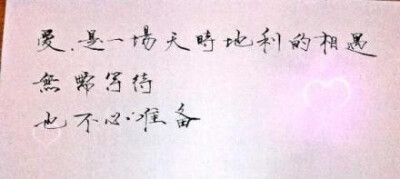 愛，是一場天時地利的相遇
無需等待
也不必准备